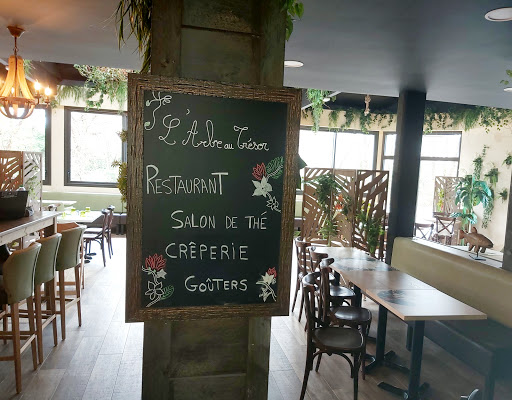 L'Arbre au Trésor
RESTAURANT
SALON DE THÉ
CRÊPERIE
GOÛTERS